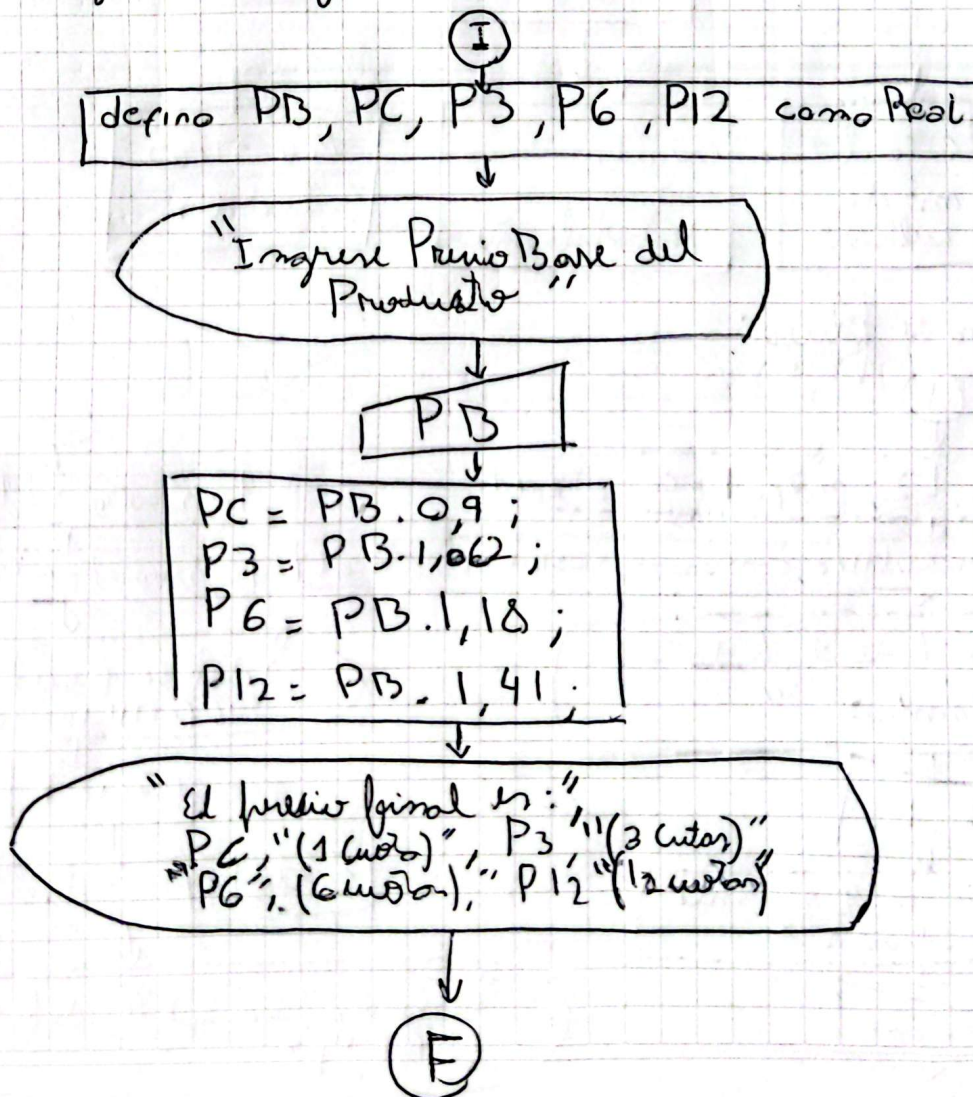 I
defino PB, PC, P3, P6, P12 como Real
"Ingrese Precio Base del
Producto"
PB
PC = PB . 0,9 ;
P3 = PB . 1,062 ;
P6 = PB . 1,18 ;
P12 = PB . 1,41 ;
"El precio final es:",
PC, "(1 cuota)", P3, "(3 cutas)"
P6", (6 cuotas)," P12 "(12 cuotas)
F